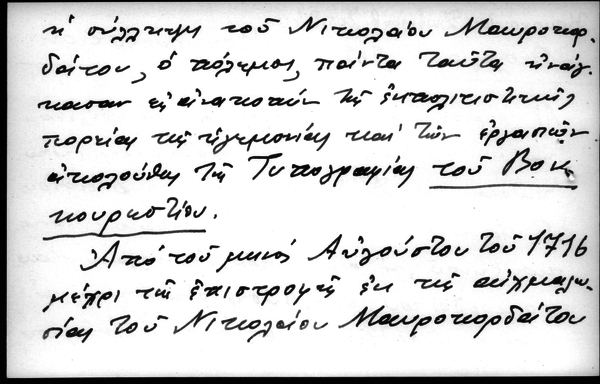 ἡ σύλληψη τοῦ Νικολάου Μαυροκορ-
δάτου, ὁ πόλεμος, πάντα ταῦτα ἠνάγ-
κασαν εἰς ἀνακοπήν τῆς ἐκπολιτιστικῆς
πορείας τῆς ἡγεμονίας καί τῶν ἐργασιῶν
ἀκολούθως τῆς Τυπογραφίας τοῦ Βου-
κουρεστίου.
Ἀπό τοῦ μηνός Αὐγούστου τοῦ 1716
μέχρι τῆς ἐπιστροφῆς ἐκ τῆς αἰχμαλω-
σίας τοῦ Νικολάου Μαυροκορδάτου